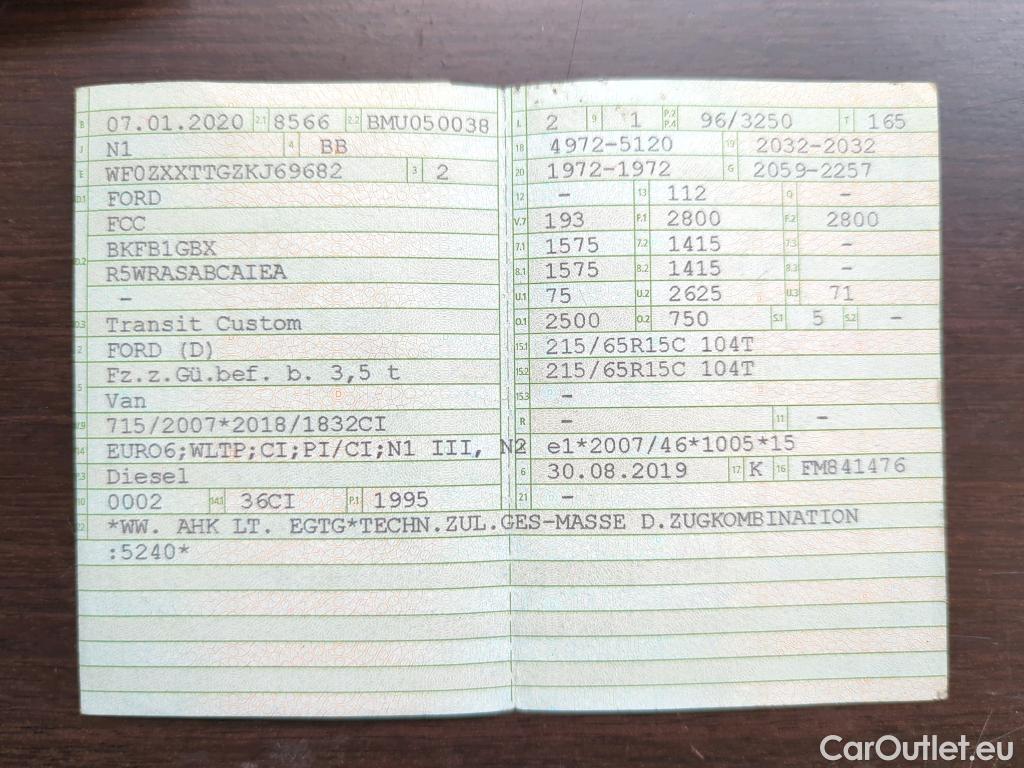 B 07.01.2020 2.1 8566 2.2 BMU050038
J N1 4 BB
E WF0ZXXTTGZKJ69682 3 2
D.1 FORD
FCC
D.2 BKFB1GBX
R5WRASABCAIEA
-
D.3 Transit Custom
2 FORD (D)
5 Fz.z.Gü.bef. b. 3,5 t
Van
V.9 715/2007*2018/1832CI
14 EURO6;WLTP;CI;PI/CI;N1 III, N2
P.3 Diesel
10 0002 14.1 36CI P.1 1995
L 2 9 1 P.2 P.4 96/3250 T 165
18 4972-5120 19 2032-2032
20 1972-1972 G 2059-2257
12 - 13 112 Q -
V.7 193 F.1 2800 F.2 2800
7.1 1575 7.2 1415 7.3 -
8.1 1575 8.2 1415 8.3 -
U.1 75 U.2 2625 U.3 71
O.1 2500 O.2 750 S.1 5 S.2 -
15.1 215/65R15C 104T
15.2 215/65R15C 104T
15.3 -
R - 11 -
K e1*2007/46*1005*15
6 30.08.2019 17 K 16 FM841476
21 -
22 *WW. AHK LT. EGTG*TECHN.ZUL.GES-MASSE D.ZUGKOMBINATION
:5240*
CarOutlet.eu